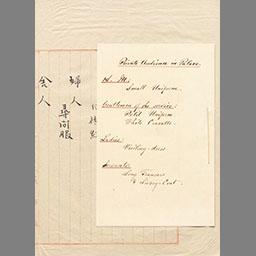 Private Audience in Palace.
H. M:
Small Uniform.
Gentlemen of the service:
Petit Uniform
White Cravatte.
Ladies:
Visiting-dress
Servants:
Long Trousers
& Livery-Coat.
婦人
尋問服
舍人